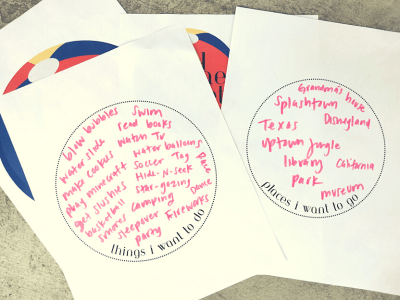 blow bubbles
swim
water slide
read books
make crepes
watch TV
play minecraft
water balloons
get slushies
soccer
Tag
basketball
Hide-N-Seek
smores
star-gazing
camping
Dance
sleepover
Fireworks
party
things i want to do
he
Grandma's house
Splashtown
Disneyland
Texas
uptown jungle
library
California
park
museum
places i want to go